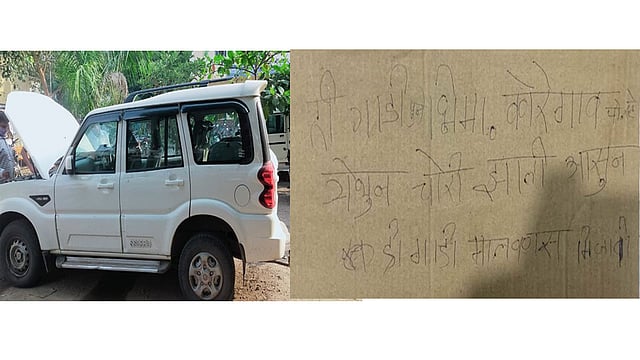 ही गाडी भिमा कोरेगाव
येथुन चोरी झाली आसुन
ही गाडी मालकास मिळावी